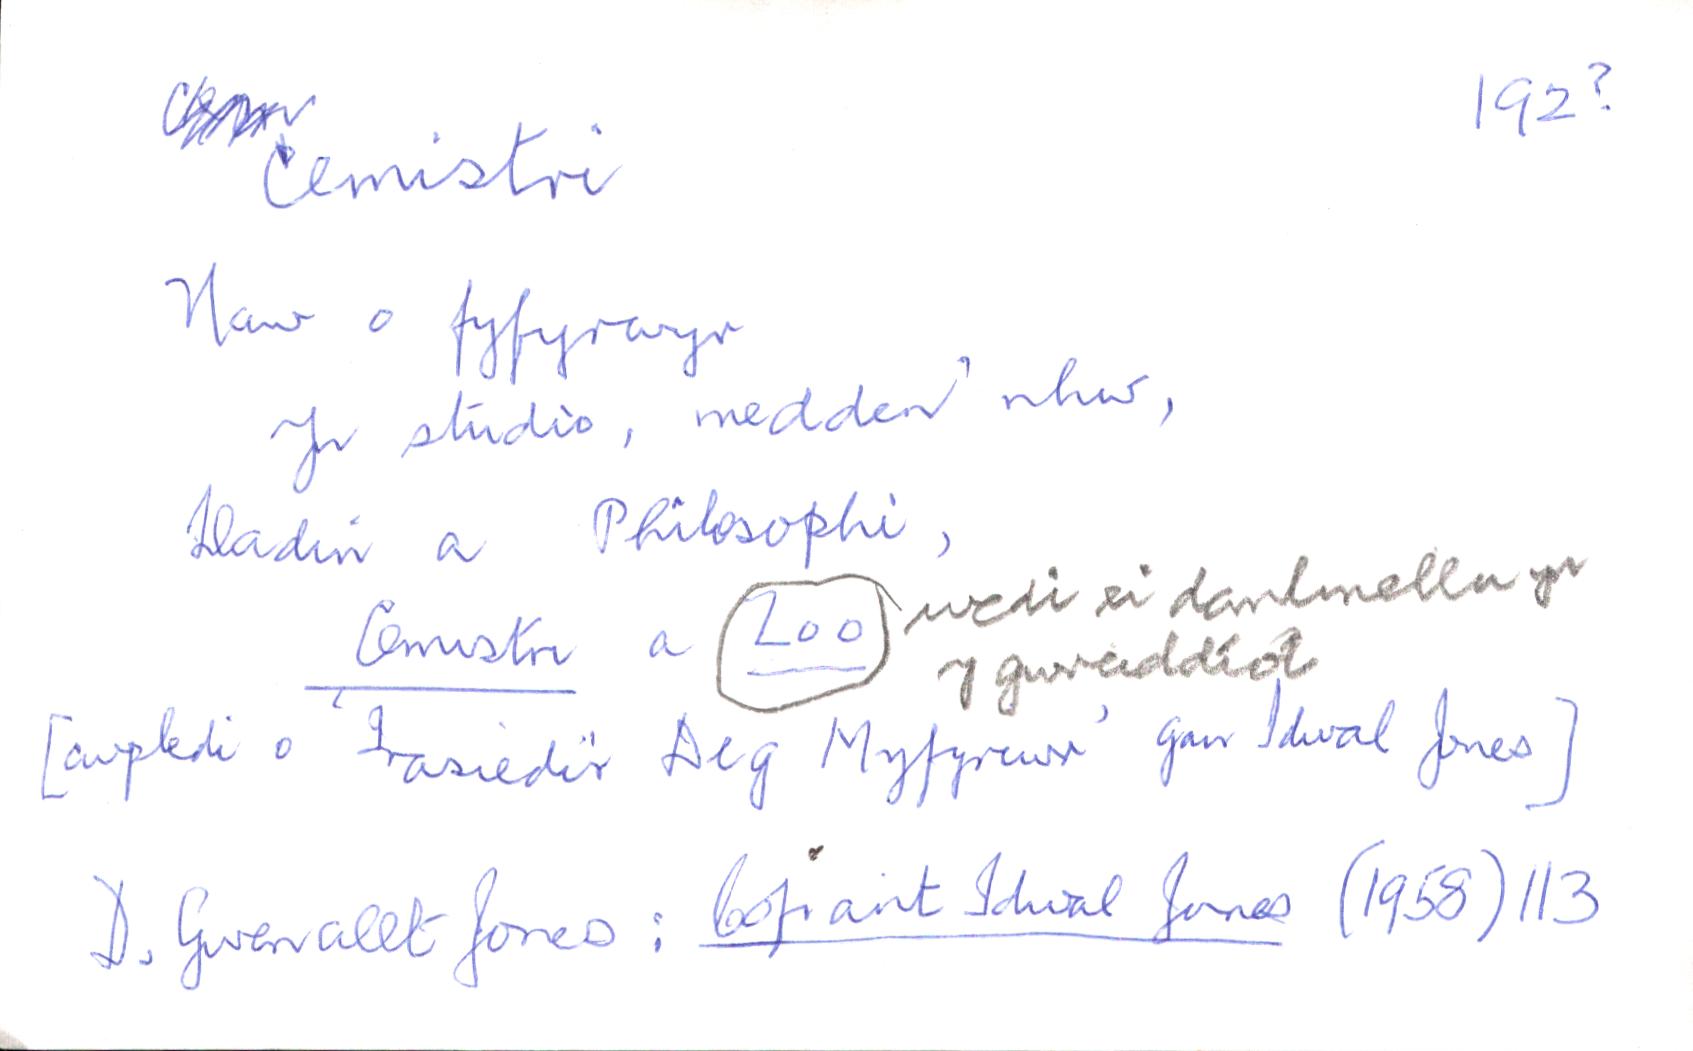 192?
Cemistri
Naw o fyfyrwyr
Yn stúdio, medden' nhw,
Lladin a Philosophi,
Cemistri a Zoo wedi ei danlinellu yn
y gwreiddiol
[cwpledi o 'Trasiedi'r Deg Myfyriwr' gan Idwal Jones]
D. Gwenallt Jones: Cofiant Idwal Jones (1958) 113